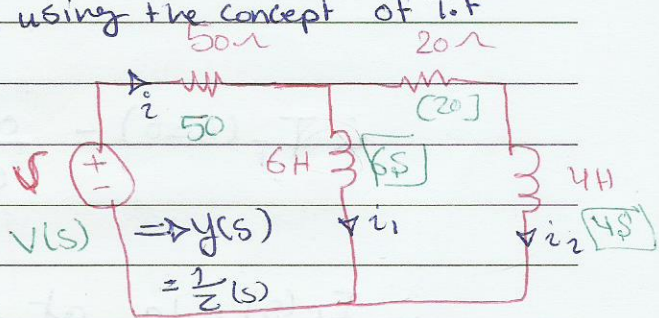 using the concept of l.t
50Ω 20Ω
i 50 [20]
V + - 6H 6S 4H
V(S) => y(s) i1 i2 4S
= 1/Z (s)